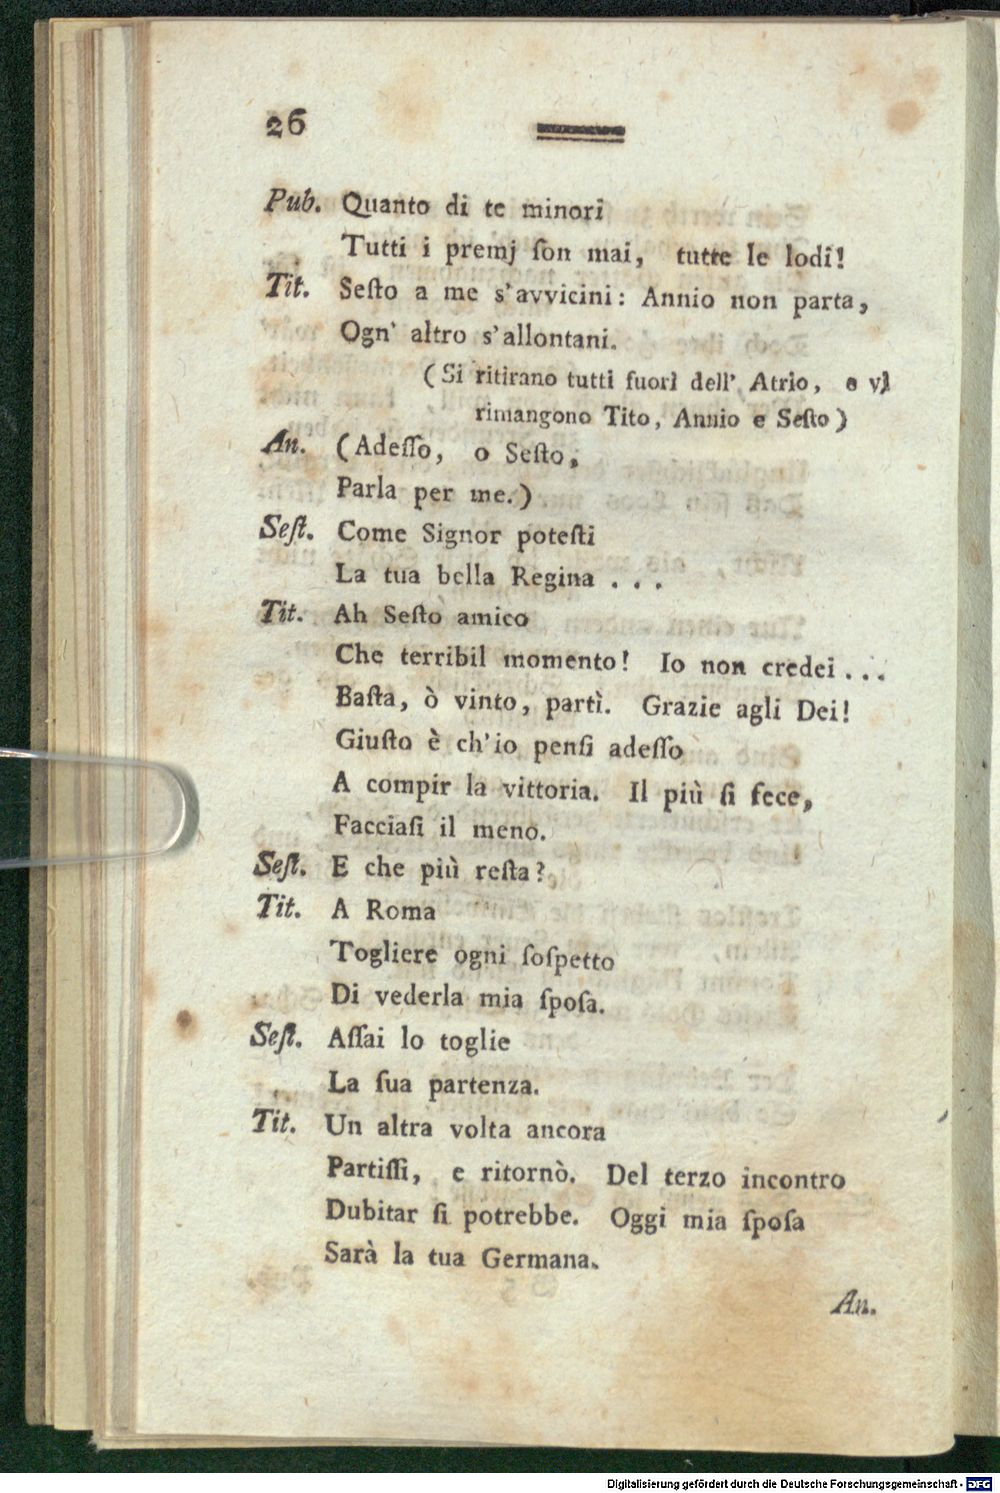 26
Pub. Quanto di te minori
Tutti i premj ſon mai, tutte le lodi!
Tit. Seſto a me s'avvicini: Annio non parta,
Ogn' altro s'allontani.
(Si ritirano tutti fuori dell' Atrio, e vi
rimangono Tito, Annio e Seſto)
An. (Adeſſo, o Seſto,
Parla per me.)
Seſt. Come Signor poteſti
La tua bella Regina . . .
Tit. Ah Seſto amico
Che terribil momento! Io non credei . . .
Baſta, ò vinto, partì. Grazie agli Dei!
Giuſto è ch'io penſi adeſſo
A compir la vittoria. Il più ſi fece,
Facciaſi il meno.
Seſt. E che più reſta?
Tit. A Roma
Togliere ogni ſoſpetto
Di vederla mia ſpoſa.
Seſt. Aſſai lo toglie
La ſua partenza.
Tit. Un altra volta ancora
Partiſſi, e ritornò. Del terzo incontro
Dubitar ſi potrebbe. Oggi mia ſpoſa
Sarà la tua Germana.
An.
Digitalisierung gefördert durch die Deutsche Forschungsgemeinschaft - DFG